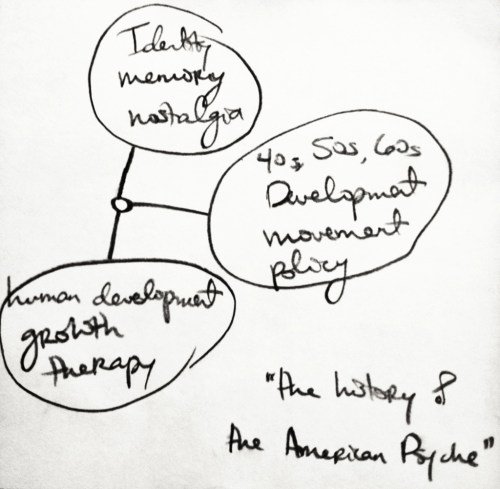 Identity
memory
nostalgia
40s, 50s, 60s
Development
movement
policy
human development
growth
therapy
"the history of
the American Psyche"